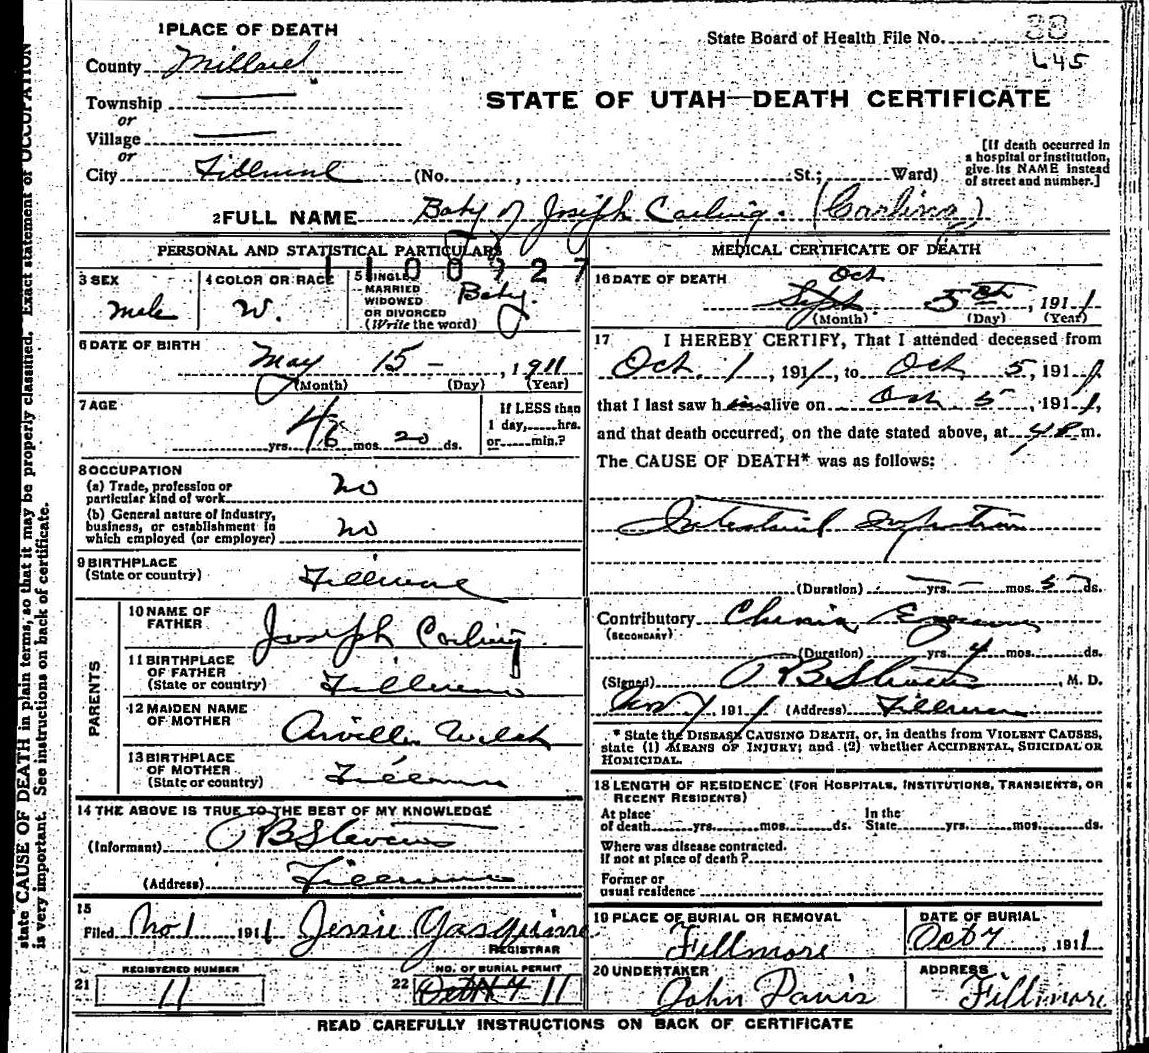 state CAUSE OF DEATH in plain terms, so that it may be properly classified. Exact statement of OCCUPATION
is very important. See instructions on back of certificate.
1 PLACE OF DEATH
County Millard
Township
or
Village
or
City Fillmore (No. , St.; Ward)
State Board of Health File No. 38
645
STATE OF UTAH—DEATH CERTIFICATE
[If death occurred in
a hospital or institution,
give its NAME instead
of street and number.]
2 FULL NAME Baby of Joseph Carling. (Carling)
PERSONAL AND STATISTICAL PARTICULARS
1100927
3 SEX
male
4 COLOR OR RACE
W.
5 SINGLE
MARRIED
WIDOWED
OR DIVORCED
(Write the word)
Baby.
6 DATE OF BIRTH
May 15 — , 1911
(Month) (Day) (Year)
7 AGE
yrs. 4 mos. 20 ds.
If LESS than
1 day, hrs.
or min.?
8 OCCUPATION
(a) Trade, profession or
particular kind of work
no
(b) General nature of industry,
business, or establishment in
which employed (or employer)
no
9 BIRTHPLACE
(State or country)
Fillmore
PARENTS
10 NAME OF
FATHER
Joseph Carling
11 BIRTHPLACE
OF FATHER
(State or country)
Fillmore
12 MAIDEN NAME
OF MOTHER
Arvilla Welch
13 BIRTHPLACE
OF MOTHER
(State or country)
Fillmore
14 THE ABOVE IS TRUE TO THE BEST OF MY KNOWLEDGE
(Informant) B Stevens
(Address) Fillmore
15
Filed Nov 1 1911 Jessie Gasquinne
REGISTRAR
21 REGISTERED NUMBER
11
22 NO. OF BURIAL PERMIT
11
MEDICAL CERTIFICATE OF DEATH
16 DATE OF DEATH
Oct
Sept 5th , 1911
(Month) (Day) (Year)
17 I HEREBY CERTIFY, That I attended deceased from
Oct. 1 , 1911, to Oct 5, 1911,
that I last saw him alive on Oct. 5 , 1911,
and that death occurred, on the date stated above, at 4 P m.
The CAUSE OF DEATH* was as follows:
Intestinal
(Duration) yrs. mos. 5 ds.
Contributory
(SECONDARY)
(Duration) yrs. 4 mos. ds.
(Signed) B Stevens , M. D.
1911 (Address) Fillmore
* State the DISEASE CAUSING DEATH, or, in deaths from VIOLENT CAUSES,
state (1) MEANS OF INJURY; and (2) whether ACCIDENTAL, SUICIDAL OR
HOMICIDAL.
18 LENGTH OF RESIDENCE (FOR HOSPITALS, INSTITUTIONS, TRANSIENTS, OR
RECENT RESIDENTS)
At place
of death yrs. mos. ds.
In the
State yrs. mos. ds.
Where was disease contracted.
if not at place of death?
Former or
usual residence
19 PLACE OF BURIAL OR REMOVAL
Fillmore
DATE OF BURIAL
Oct 7 , 1911
20 UNDERTAKER
John Davis
ADDRESS
Fillmore
READ CAREFULLY INSTRUCTIONS ON BACK OF CERTIFICATE